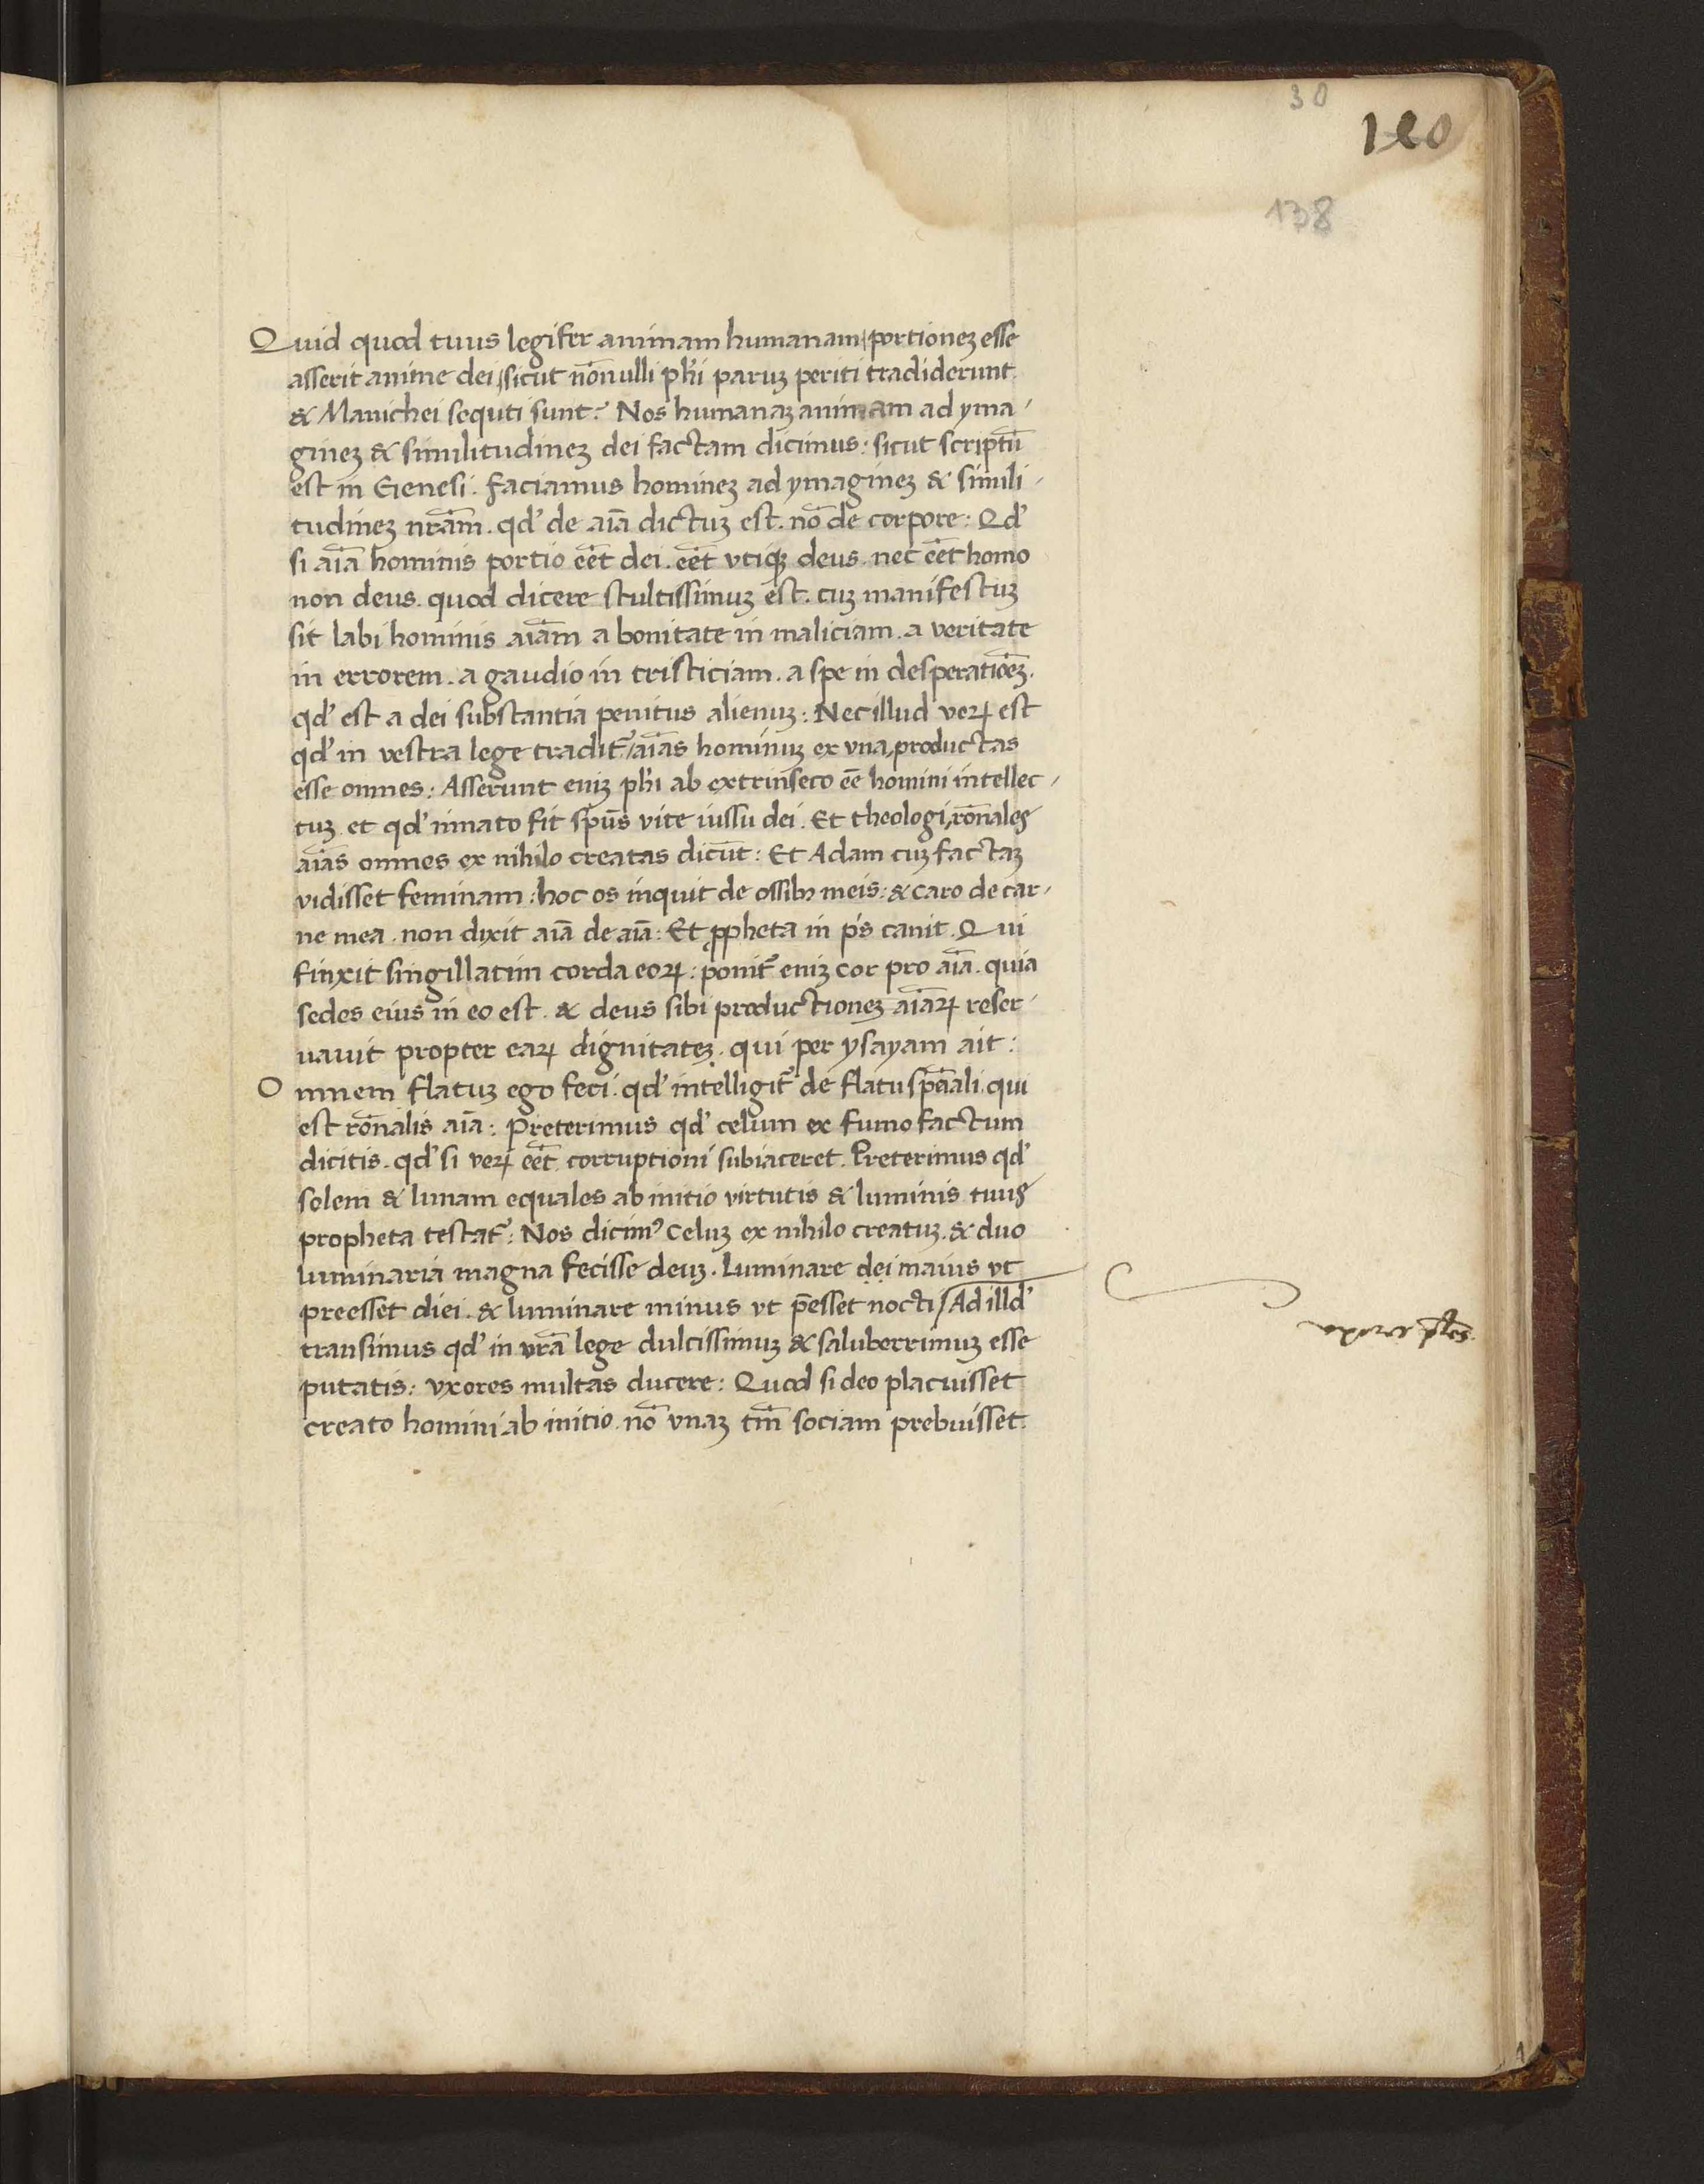 30
120
138
Quid quod tuus legifer animam humanam portioneꝫ esse
asserit anime dei, sicut nōnulli phi̅ paruꝫ periti tradiderunt
& Manichei sequti sunt? Nos humanaꝫ animam ad yma-
gineꝫ & similitudineꝫ dei factam dicimus: sicut scriptū
est in Genesi. faciamus homineꝫ ad ymagineꝫ & simili-
tudineꝫ nr̄am. qd' de aīa dictuꝫ est. nō de corpore: Qd'
si aīa hominis portio eēt dei. eēt vtiqꝫ deus. nec eēt homo
non deus. quod dicere stultissimuꝫ est. cuꝫ manifestuꝫ
sit labi hominis aīam a bonitate in maliciam. a veritate
in errorem. a gaudio in tristiciam. a spe in desperatiōeꝫ.
qd' est a dei substantia penitus alienuꝫ: Nec illud veꝝ est
qd' in vestra lege tradit̄, aīas hominuꝫ ex vna productas
esse omnes: Asserunt eniꝫ phi̅ ab extrinseco eē homini intellec-
tuꝫ. et qd' innato fit sp̄us vite iussu dei. Et theologi, rōnales
aīas omnes ex nihilo creatas dicūt: Et Adam cuꝫ factaꝫ
vidisset feminam: hoc os inquit de ossibꝫ meis: & caro de car-
ne mea. non dixit aīa de aīa: Et ꝓpheta in ps̄ canit. Qui
finxit singillatim corda eoꝝ: ponit̄ eniꝫ cor pro aīa. quia
sedes eius in eo est. & deus sibi productioneꝫ aīaꝝ reser-
uauit propter eaꝝ dignitateꝫ. qui per ysayam ait:
Omnem flatuꝫ ego feci. qd' intelligit̄ de flatu sp̄eāali. qui
est rōnalis aīa: Preterimus qd' celum ex fumo factum
dicitis. qd' si veꝝ eēt corruptioni subiaceret. Preterimus qd'
solem & lunam equales ab initio virtutis & luminis tuus
propheta testat̄: Nos dicimꝰ celuꝫ ex nihilo creatuꝫ. & duo
luminaria magna fecisse deuꝫ. Luminare dei maius vt
preesset diei. & luminare minus vt p̄esset nocti / Ad illd'
transimus qd' in vr̄a lege dulcissimuꝫ & saluberrimuꝫ esse
putatis: vxores multas ducere: Quod si deo placuisset
creato homini ab initio. nō vnaꝫ tm̄ sociam prebuisset.